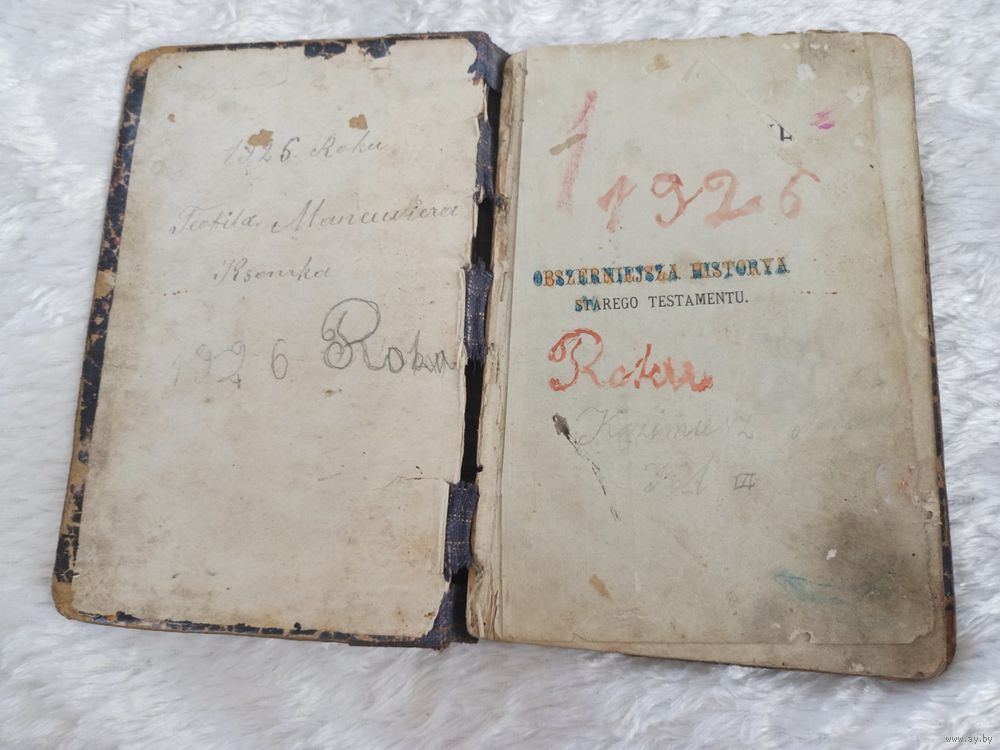 1926. Roku
Teofila. Mancewicza
Ksomka
1926 Roku
1
1926
OBSZERNIEJSZA HISTORYA
STAREGO TESTAMENTU.
Roku
Kazimiesz
www.ay.by